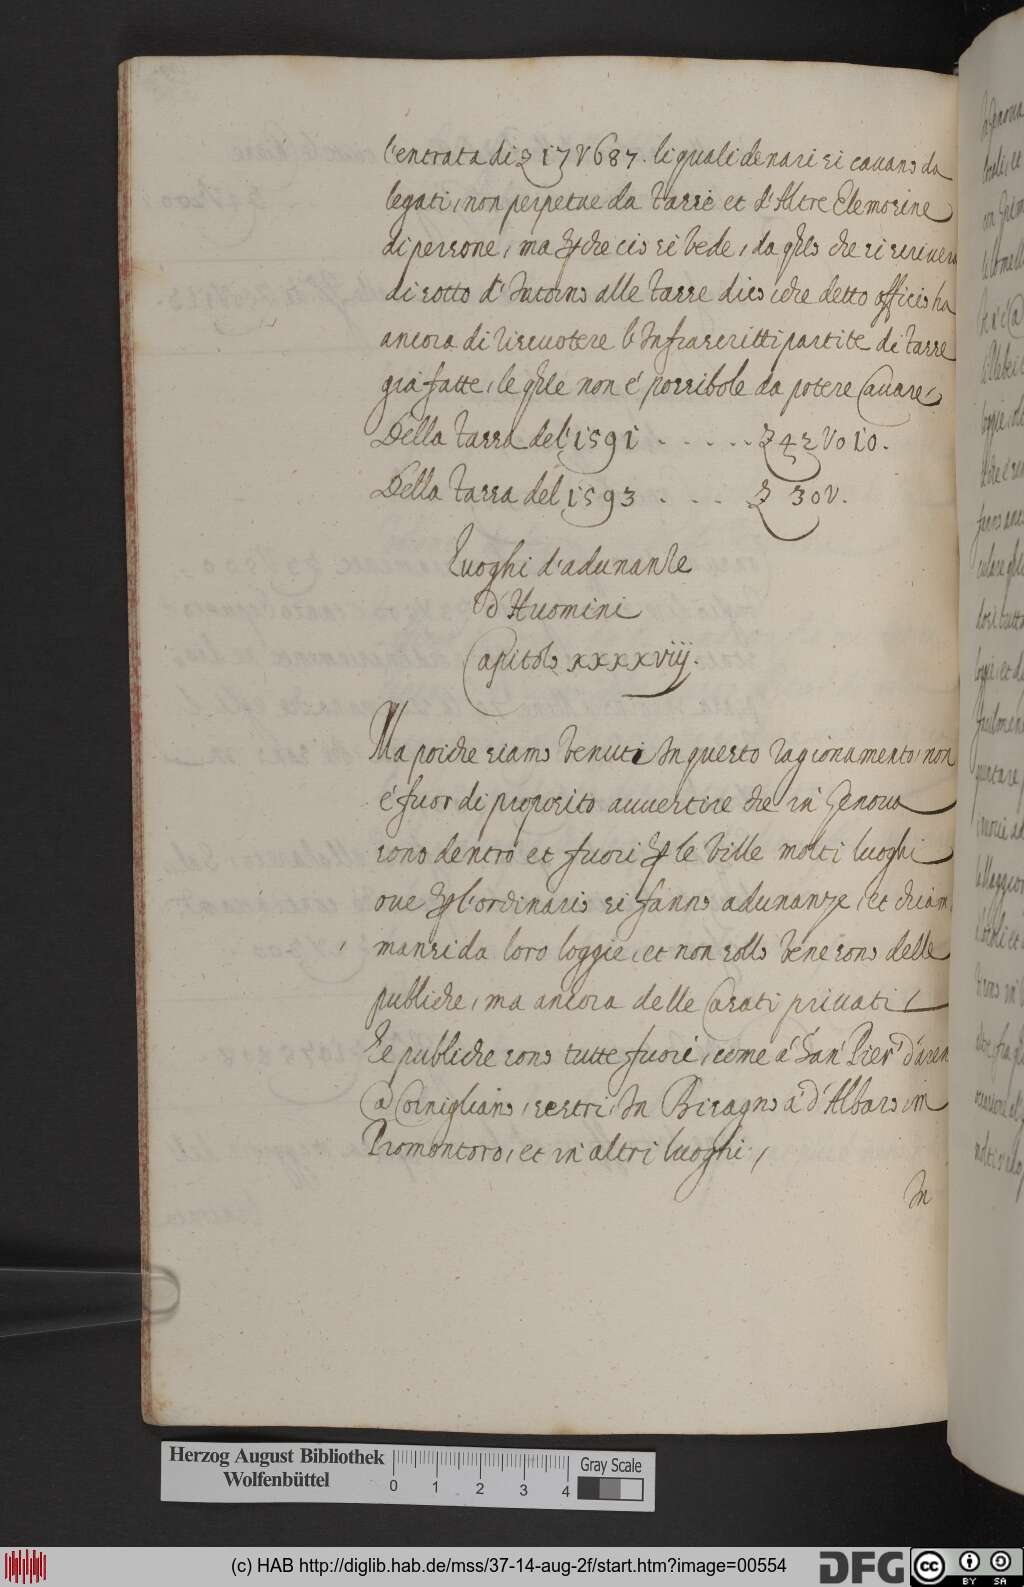 l'entrata di £ 17V687. li quali denari si cavano da
legati, non perpetue da tasse et d'Altre Elemosine
di persone, ma che cio si vede, da che si
di sotto d'Intorno alle tasse dico che detto officio ha
ancora di riscuotere l'Infrascritti partite di tasse
gia fatte, le qle non é possibole da potere Cavare,
Della tassa del' 1591 . - - - .. £ 42V010.
Della tassa del 1593 . . - - £ 30V.
Luoghi d'adunanze
d'Huomini
Capitolo xxxxviij.
Ma poiche siamo venuti In questo ragionamento, non
é fuor di proposito avvertire che in Genova
sono dentro et fuori le ville molti luoghi
ove l'ordinario si fanno adunanze, et chiam
mansi da loro loggie, et non solo vene sono delle
publiche, ma ancora delle Casati privati,
Le publiche sono tutte fuori, come á San' Pier' d'aren
a Cornigliano, sestri, In Bisagno á d'Albaro, in
Promontoro, et in altri luoghi,
In
Herzog August Bibliothek
Wolfenbüttel
0 1 2 3 4
Gray Scale
(c) HAB http://diglib.hab.de/mss/37-14-aug-2f/start.htm?image=00554
DFG
cc BY SA